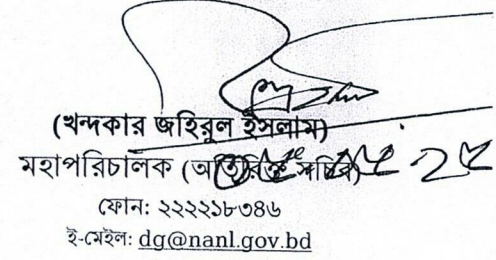 (খন্দকার জহিরুল ইসলাম)
মহাপরিচালক (অতিরিক্ত সচিব)
ফোন: ২২২২১৮৩৪৬
ই-মেইল: dg@nanl.gov.bd